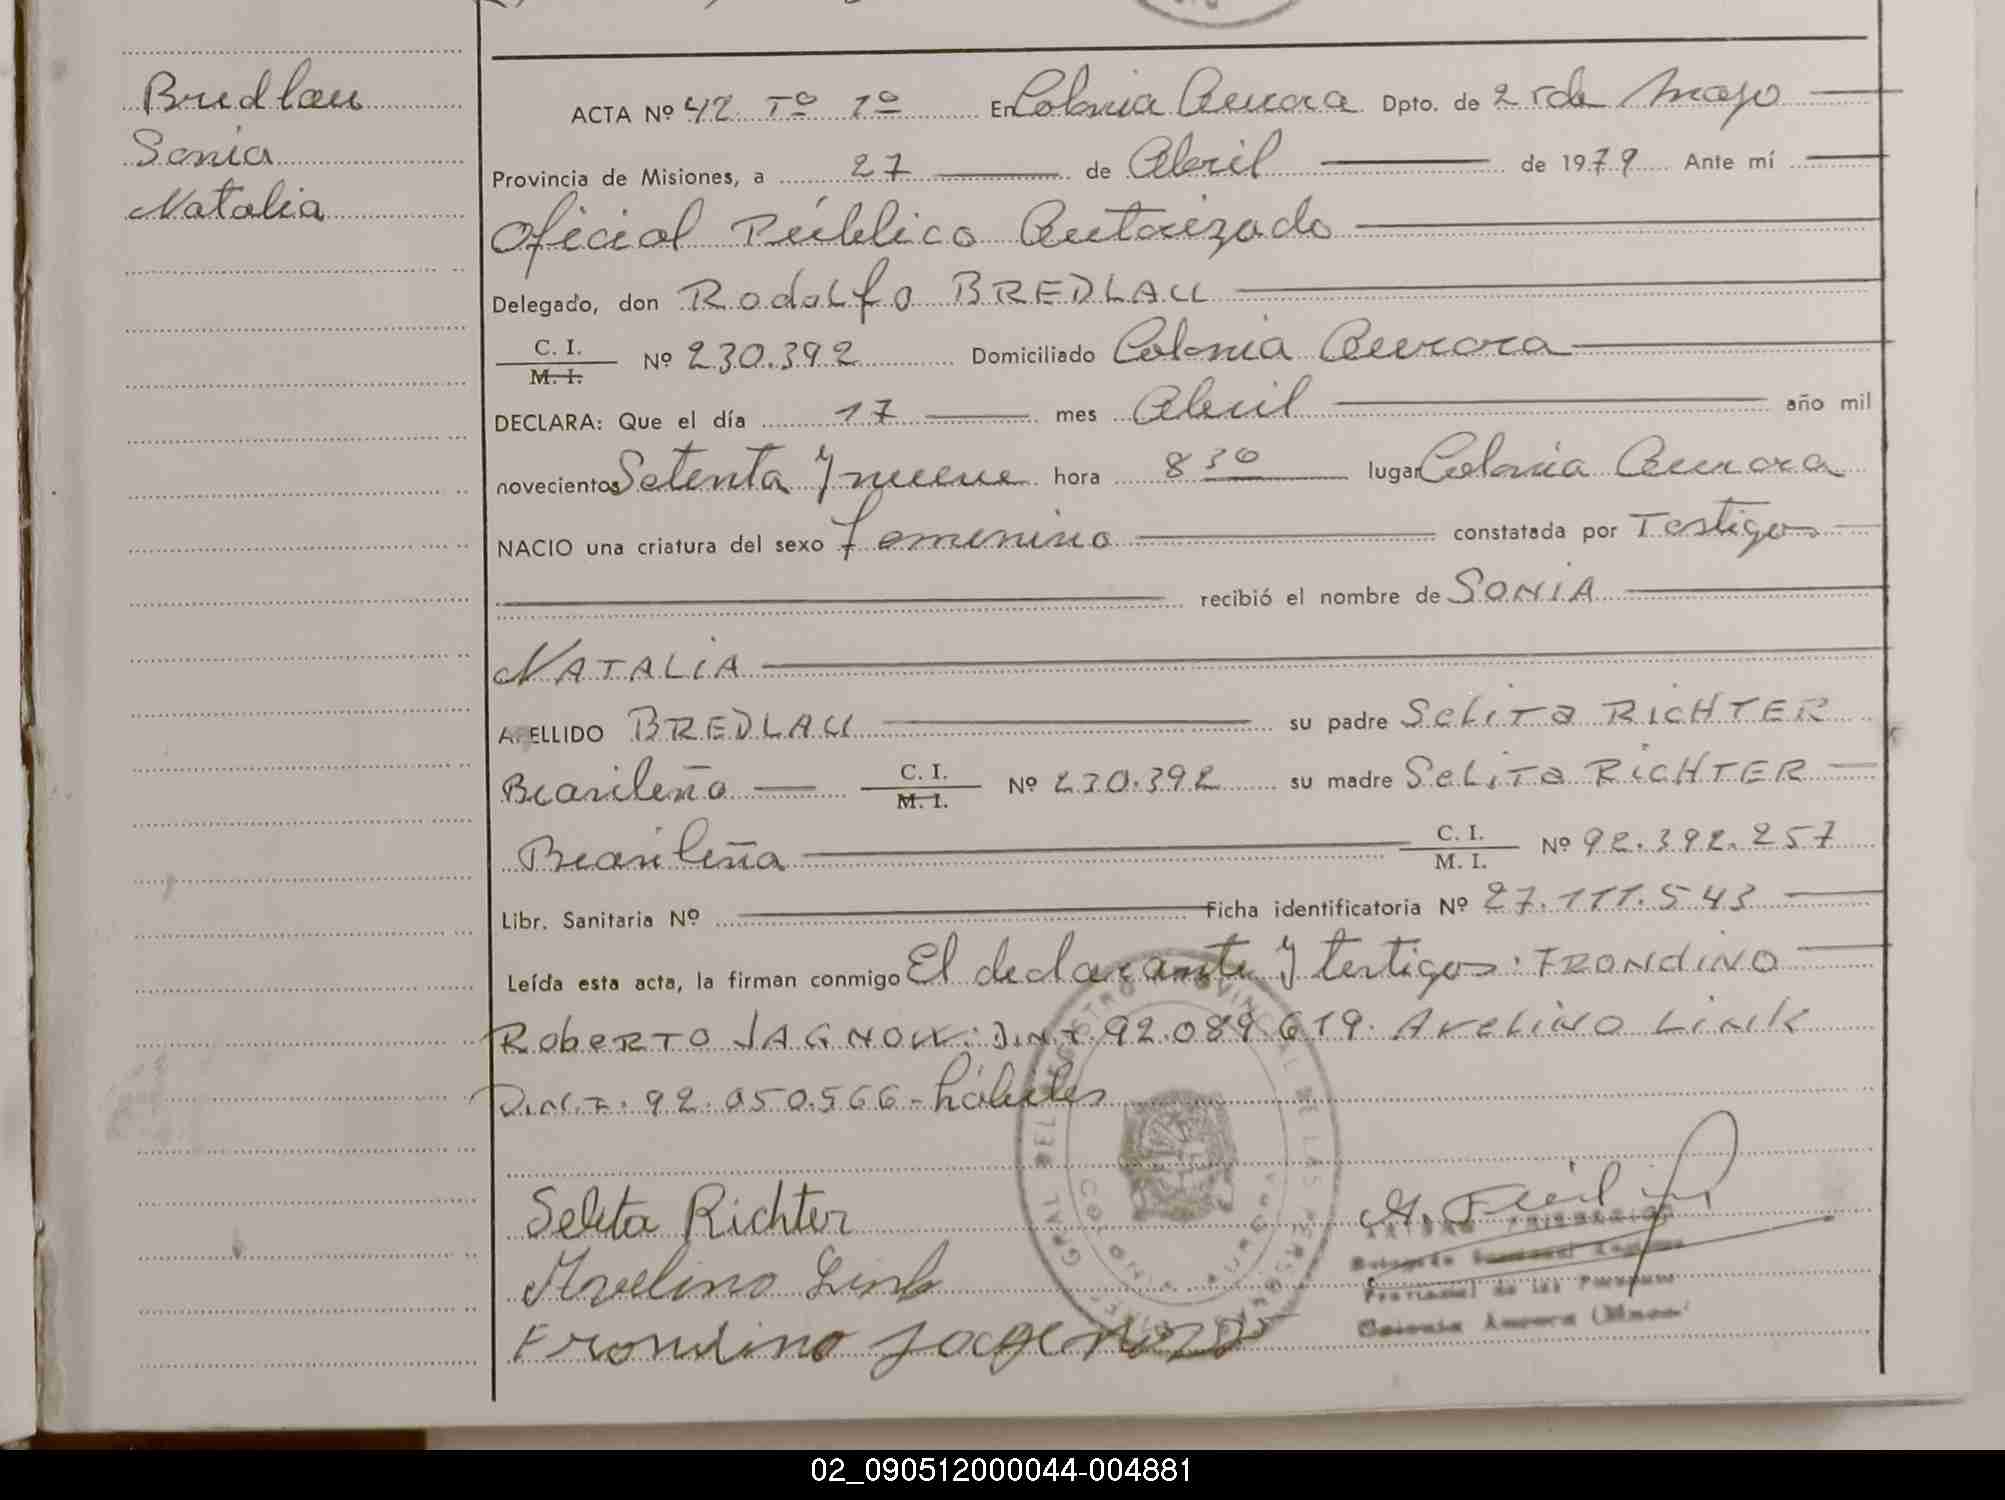 Bredlau
Sonia
Natalia
ACTA Nº 42 Tº 1º En Colonia Aurora Dpto. de 25 de Mayo
Provincia de Misiones, a 27 de Abril de 1979 Ante mí
Oficial Público Autorizado
Delegado, don Rodolfo BREDLAU
C. I.
M. I. Nº 230.392 Domiciliado Colonia Aurora
DECLARA: Que el día 17 mes Abril año mil
novecientos Setenta y nueve hora 8 30 lugar Colonia Aurora
NACIO una criatura del sexo femenino constatada por Testigos
recibió el nombre de SONIA
NATALIA
A ELLIDO BREDLAU su padre SELITA RICHTER
Brasileña C. I.
M. I. Nº 230.392 su madre SELITA RICHTER
Brasileña C. I.
M. I. Nº 92.392.257
Libr. Sanitaria Nº Ficha identificatoria Nº 27.111.543
Leída esta acta, la firman conmigo El declarante y testigos: FRONDINO
ROBERTO JAGNOW: D.N.I. 92.089.619. AVELINO LINK
D.N.I. 92.050.566 - hábiles
Selita Richter
Avelino Link
Frondino
Colonia Aurora
02_090512000044-004881